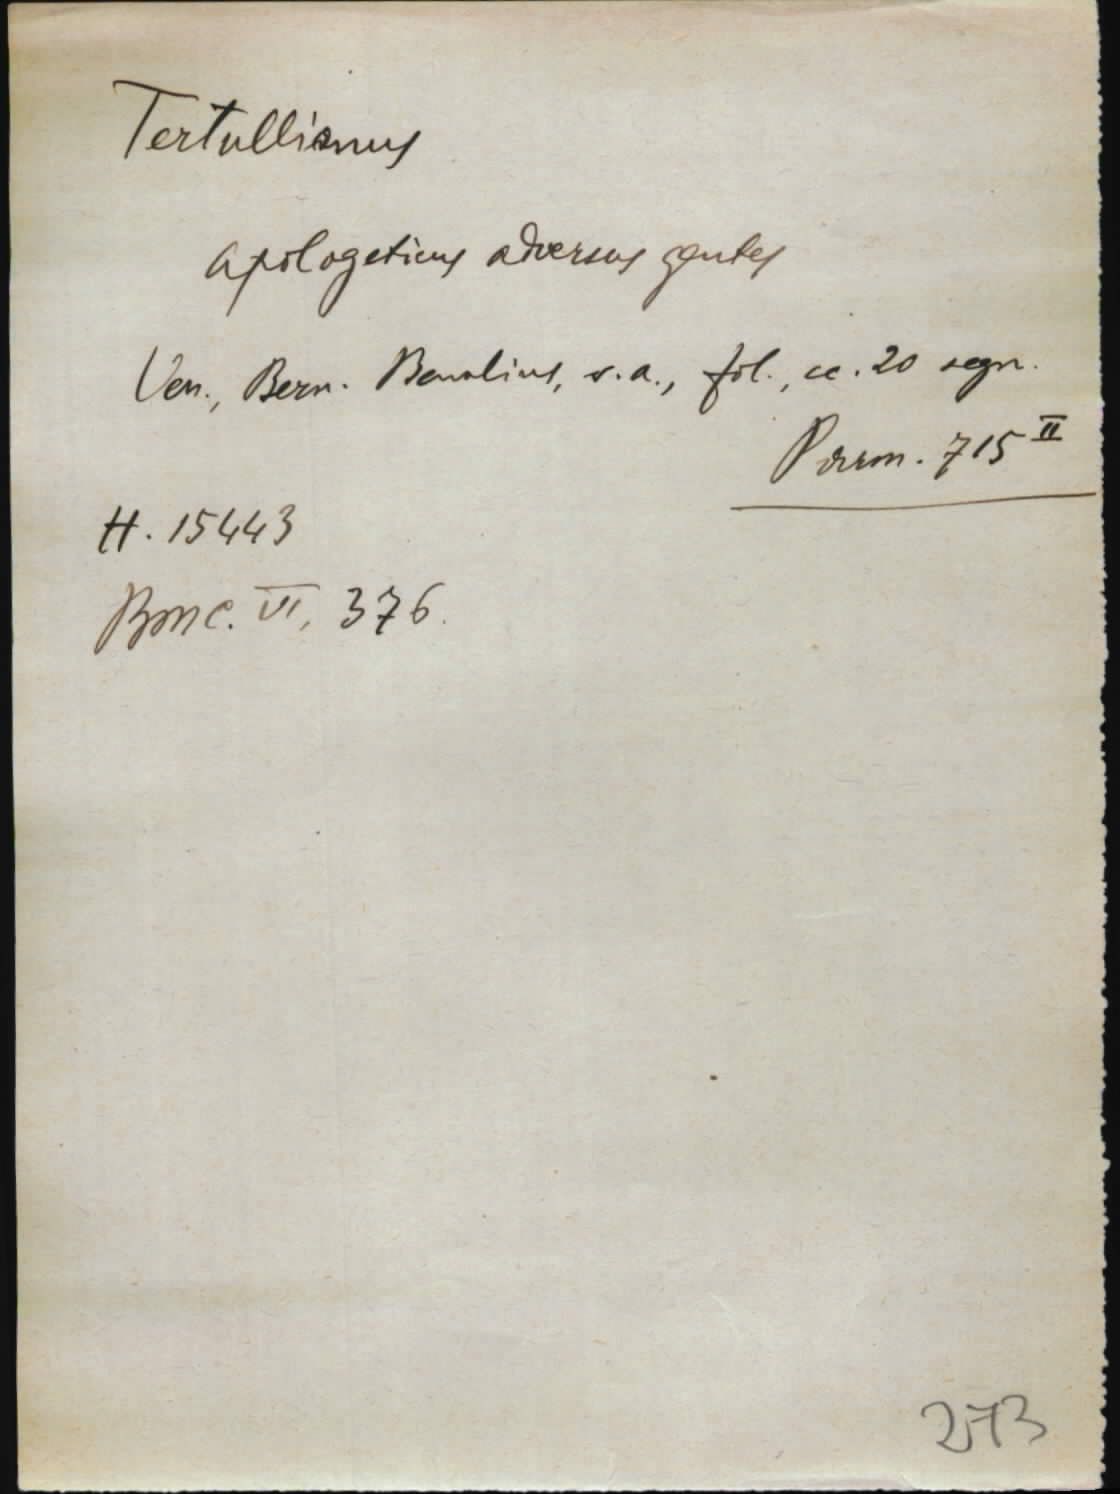 Tertullianus
Apologeticus adversus gentes
Ven., Bern. Benalius, s.a., fol., cc. 20 segn.
Parm. 715 II
H. 15443
BMC. VI, 376.
273